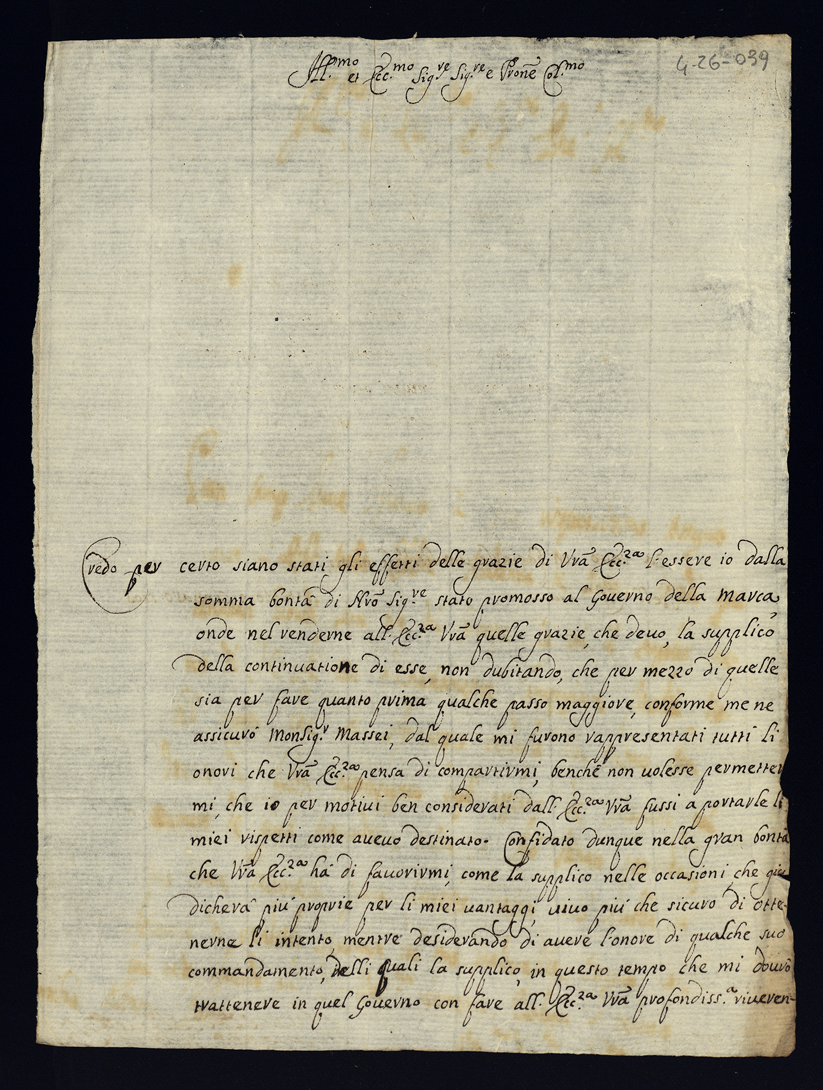 Ill.mo et Ecc.mo Sig.re Sig.re e Prone Col.mo
4-26-039
Credo per certo siano stati gli effetti delle grazie di Vrã Ecc.za l'essere io dalla
somma bontà di Nrõ Sig.re stato promosso al Governo della Marca,
onde nel renderne all' Ecc.za Vrã quelle grazie, che devo, la supplico
della continuatione di esse, non dubitando, che per mezzo di quelle
sia per fare quanto prima qualche passo maggiore, conforme me ne
assicurò Monsig.r Massei, dal quale mi furono rappresentati tutti li
onori che Vrã Ecc.za pensa di compartirmi, benchè non volesse permetter
mi, che io per motivi ben considerati dall' Ecc.za Vrã fussi a portarle li
miei rispetti come avevo destinato. Confidato dunque nella gran bontà
che Vrã Ecc.za hà di favorirmi, come la supplico nelle occasioni, che giu
dicherà più proprie per li miei vantaggi, vivo più che sicuro di otte-
nerne li intento, mentre desiderando di avere l'onore di qualche suo
commandamento, delli quali la supplico, in questo tempo che mi dovrò
trattenere in quel Governo con fare all' Ecc.za Vrã profondiss.a riveren-